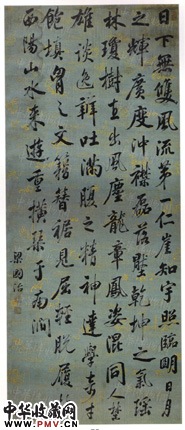 日下無雙風流第一仁崖知宇照臨明日月
之輝廣度沖襟磊落壓乾坤之氣瑤
林瓊樹直出風塵龍章鳳姿混同人埜
雄談逸辯吐滿腹之精神達學奇才
飽填胷之文籍簪裾見屈輕脫履於
西陽山水來遊重橫琴于南澗
梁國治
中华收藏网
www.mycollect.net